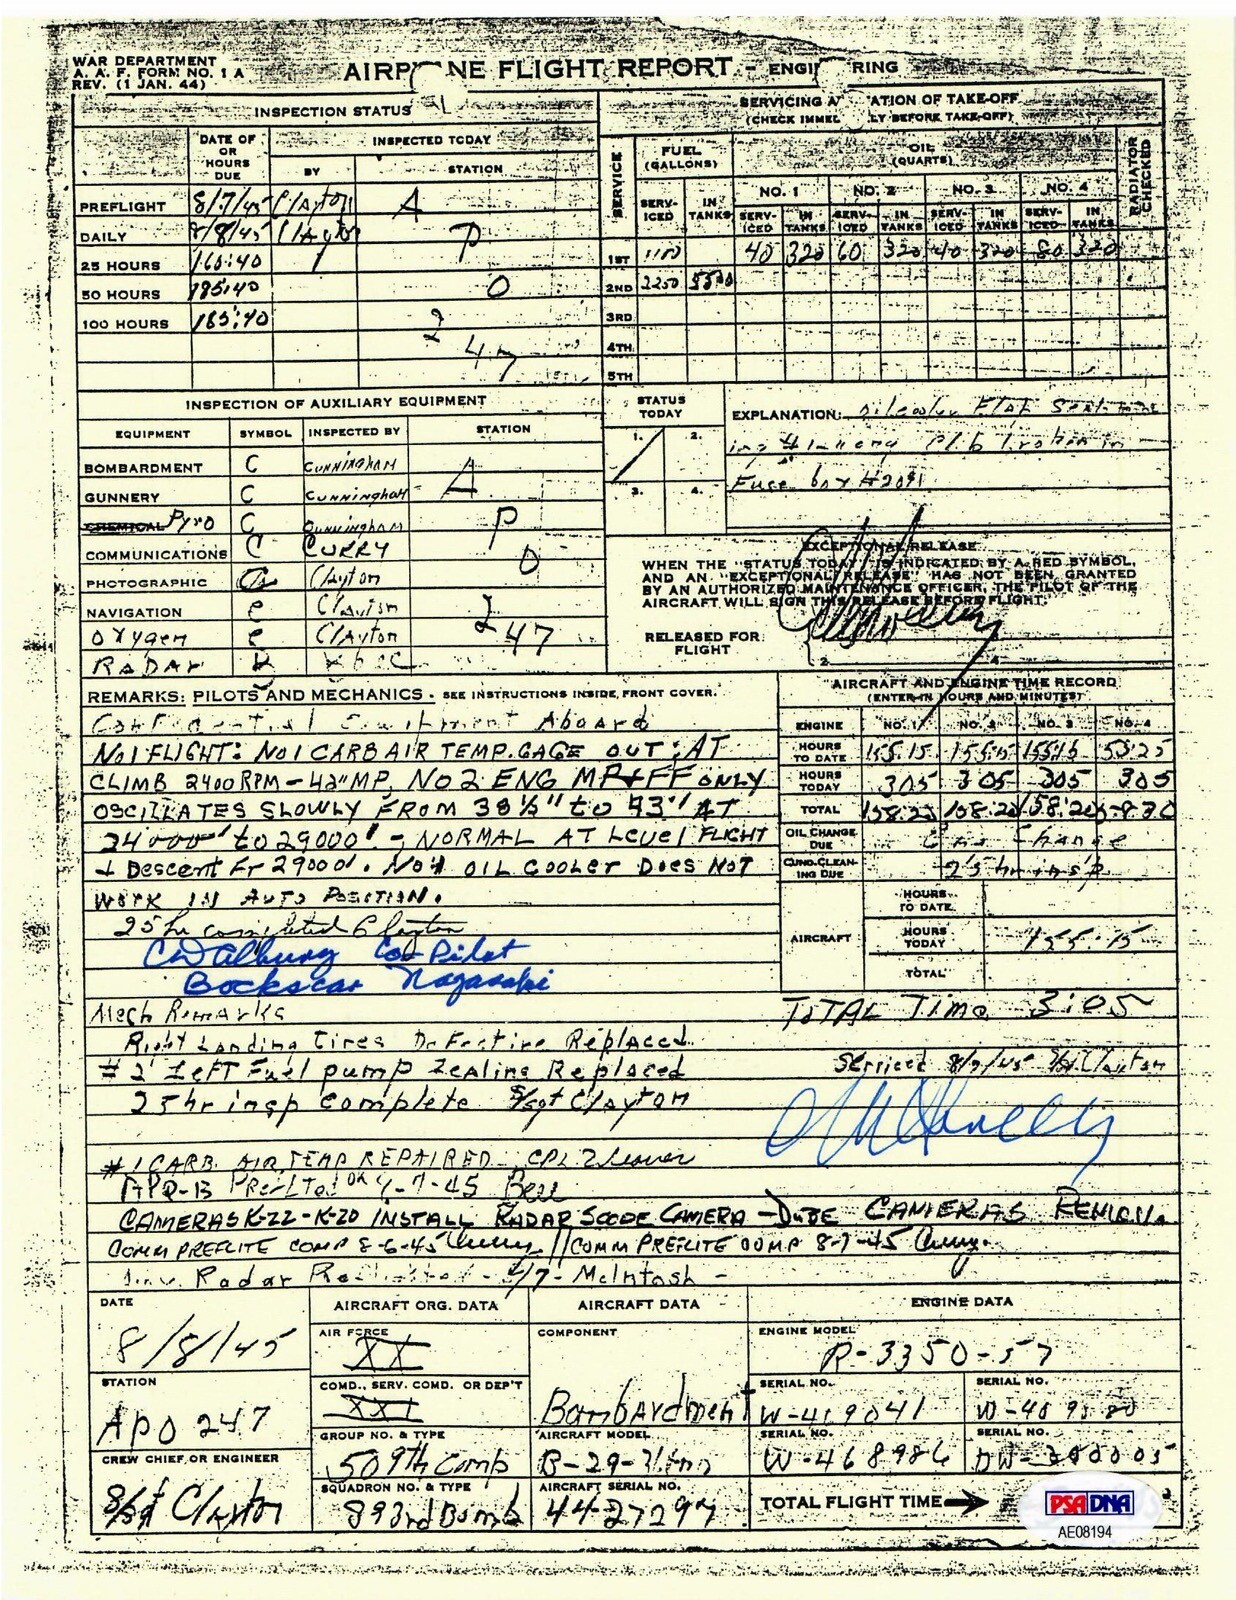 WAR DEPARTMENT
A. A. F. FORM NO. 1 A
REV. (1 JAN. 44)
AIRP NE FLIGHT REPORT - ENGI RING
INSPECTION STATUS
DATE OF OR HOURS DUE
INSPECTED TODAY
BY
STATION
PREFLIGHT 8/7/45 Clayton A
DAILY 8/8/45 Clayton P
25 HOURS 160:40
50 HOURS 185:40 O
100 HOURS 185:40 2
47
SERVICING A ATION OF TAKE-OFF
(CHECK IMMEL LY BEFORE TAKE-OFF)
SERVICE
FUEL (GALLONS)
OIL (QUARTS)
RADIATOR CHECKED
NO. 1 NO. 2 NO. 3 NO. 4
SERVICED IN TANKS SERVICED IN TANKS SERVICED IN TANKS SERVICED IN TANKS SERVICED IN TANKS
1ST 1100 40 320 60 320 40 320 80 320
2ND 2250 5500
3RD
4TH
5TH
INSPECTION OF AUXILIARY EQUIPMENT
EQUIPMENT SYMBOL INSPECTED BY STATION
BOMBARDMENT C CUNNINGHAM
GUNNERY C CUNNINGHAM A
CHEMICAL Pyro C CUNNINGHAM P
COMMUNICATIONS C CURRY O
PHOTOGRAPHIC Clayton
NAVIGATION e Clayton 2
Oxygen e Clayton 47
RADAR
STATUS TODAY
1. 2.
3. 4.
EXPLANATION: Flap
in
Fuse box #2091
EXCEPTIONAL RELEASE
WHEN THE "STATUS TODAY" IS INDICATED BY A RED SYMBOL,
AND AN "EXCEPTIONAL RELEASE" HAS NOT BEEN GRANTED
BY AN AUTHORIZED MAINTENANCE OFFICER, THE PILOT OF THE
AIRCRAFT WILL SIGN THIS RELEASE BEFORE FLIGHT.
RELEASED FOR FLIGHT
2 4
REMARKS: PILOTS AND MECHANICS - SEE INSTRUCTIONS INSIDE, FRONT COVER.
Confidential Equipment Aboard
No1 FLIGHT: No1 CARB AIR TEMP. GAGE OUT; AT
CLIMB 2400 RPM - 42" MP, NO 2 ENG MP + FF ONLY
OSCILLATES SLOWLY FROM 38½" to 43" AT
24000' to 29000' - NORMAL AT Level FLIGHT
+ Descent Fr 29000'. No 4 OIL COOLER DOES NOT
WORK IN AUTO POSITION.
25 hr completed Clayton
CD Albury Co-Pilot
Bockscar Nagasaki
AIRCRAFT AND ENGINE TIME RECORD
(ENTER IN HOURS AND MINUTES)
ENGINE NO. 1 NO. 2 NO. 3 NO. 4
HOURS TO DATE 155.15 155:15 155:15 53:25
HOURS TODAY 305 3 05 305 3 05
TOTAL 158.20 158.20 158:20
OIL CHANGE DUE Change
CUNO CLEANING DUE 25 hr insp
AIRCRAFT
HOURS TO DATE
HOURS TODAY 155.15
TOTAL
Mech Remarks
TOTAL Time 3:05
Right Landing Tires Defective Replaced
Serviced Clayton
# 2 Left Fuel pump Replaced
25 hr insp Complete S/Sgt Clayton
# 1 CARB. AIR TEMP REPAIRED CPL
APQ-13
CAMERAS K-22 - K-20 INSTALL RADAR SCOPE CAMERA
COMM PREFLITE COMP 8-6-45 Curry // COMM PREFLITE COMP 8-7-45 Curry.
Radar 8/7 - McIntosh -
DATE
8/8/45
STATION
APO 247
CREW CHIEF OR ENGINEER
S/Sgt Clayton
AIRCRAFT ORG. DATA
AIR FORCE
XX
COMD., SERV. COMD. OR DEP'T
XXI
GROUP NO. & TYPE
509th Comp
SQUADRON NO. & TYPE
393rd Bomb
AIRCRAFT DATA
COMPONENT
Bombardment
AIRCRAFT MODEL
B-29-36
AIRCRAFT SERIAL NO.
44-27297
ENGINE DATA
ENGINE MODEL
R-3350-57
SERIAL NO. SERIAL NO.
W-469041
SERIAL NO. SERIAL NO.
W-468986
TOTAL FLIGHT TIME
PSA DNA
AE08194